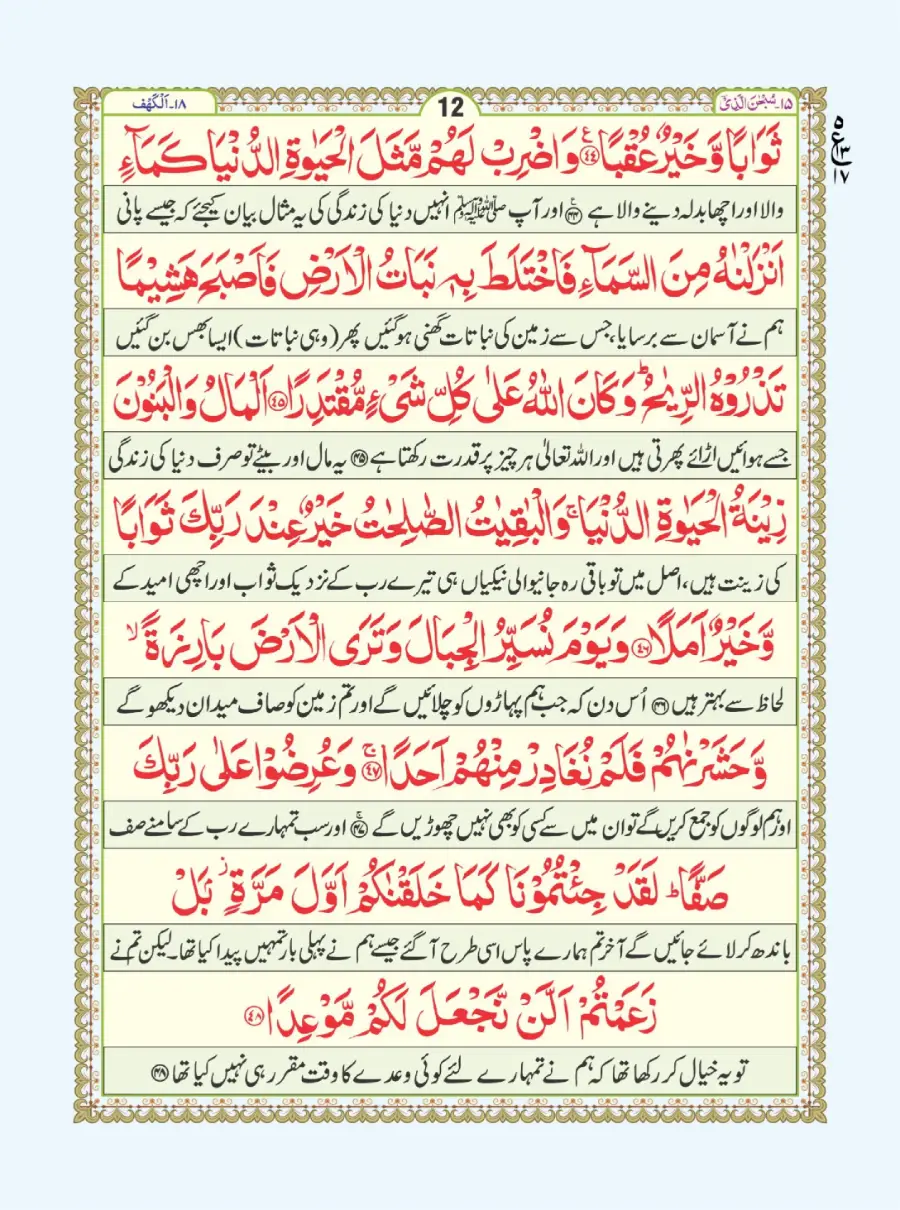 ١٨۔اَلْکَہْف
12
١٥۔سُبْحٰنَ الَّذِیْٓ
ثَوَابًا وَّخَيْرٌ عُقْبًا ﴿٤٤﴾ وَاضْرِبْ لَهُمْ مَّثَلَ الْحَيٰوةِ الدُّنْيَا كَمَآءٍ
والا اور اچھا بدلہ دینے والا ہے ﴿۴۴﴾ اور آپ ﷺ انہیں دنیا کی زندگی کی یہ مثال بیان کیجئے کہ جیسے پانی
اَنْزَلْنٰهُ مِنَ السَّمَآءِ فَاخْتَلَطَ بِهٖ نَبَاتُ الْاَرْضِ فَاَصْبَحَ هَشِيْمًا
ہم نے آسمان سے برسایا، جس سے زمین کی نباتات گھنی ہوگئیں پھر (وہی نباتات) ایسا بھس بن گئیں
تَذْرُوْهُ الرِّيٰحُ ؕ وَكَانَ اللّٰهُ عَلٰى كُلِّ شَىْءٍ مُّقْتَدِرًا ﴿٤٥﴾ اَلْمَالُ وَالْبَنُوْنَ
جسے ہوائیں اڑائے پھرتی ہیں اور اللہ تعالیٰ ہر چیز پر قدرت رکھتا ہے ﴿۴۵﴾ یہ مال اور بیٹے تو صرف دنیا کی زندگی
زِيْنَةُ الْحَيٰوةِ الدُّنْيَا ۚ وَالْبٰقِيٰتُ الصّٰلِحٰتُ خَيْرٌ عِنْدَ رَبِّكَ ثَوَابًا
کی زینت ہیں، اصل میں تو باقی رہ جانیوالی نیکیاں ہی تیرے رب کے نزدیک ثواب اور اچھی امید کے
وَّخَيْرٌ اَمَلًا ﴿٤٦﴾ وَيَوْمَ نُسَيِّرُ الْجِبَالَ وَتَرَى الْاَرْضَ بَارِزَةً ۙ
لحاظ سے بہتر ہیں ﴿۴۶﴾ اُس دن کہ جب ہم پہاڑوں کو چلائیں گے اور تم زمین کو صاف میدان دیکھو گے
وَّحَشَرْنٰهُمْ فَلَمْ نُغَادِرْ مِنْهُمْ اَحَدًا ۚ ﴿٤٧﴾ وَعُرِضُوْا عَلٰى رَبِّكَ
اور ہم لوگوں کو جمع کریں گے تو ان میں سے کسی کو بھی نہیں چھوڑیں گے ﴿۴۷﴾ اور سب تمہارے رب کے سامنے صف
صَفًّا ؕ لَقَدْ جِئْتُمُوْنَا كَمَا خَلَقْنٰكُمْ اَوَّلَ مَرَّةٍ ۢ ز بَلْ
باندھ کر لائے جائیں گے آخر تم ہمارے پاس اسی طرح آگئے جیسے ہم نے پہلی بار تمہیں پیدا کیا تھا۔ لیکن تم نے
زَعَمْتُمْ اَلَّنْ نَّجْعَلَ لَكُمْ مَّوْعِدًا ﴿٤٨﴾
تو یہ خیال کر رکھا تھا کہ ہم نے تمہارے لئے کوئی وعدے کا وقت مقرر ہی نہیں کیا تھا ﴿۴۸﴾